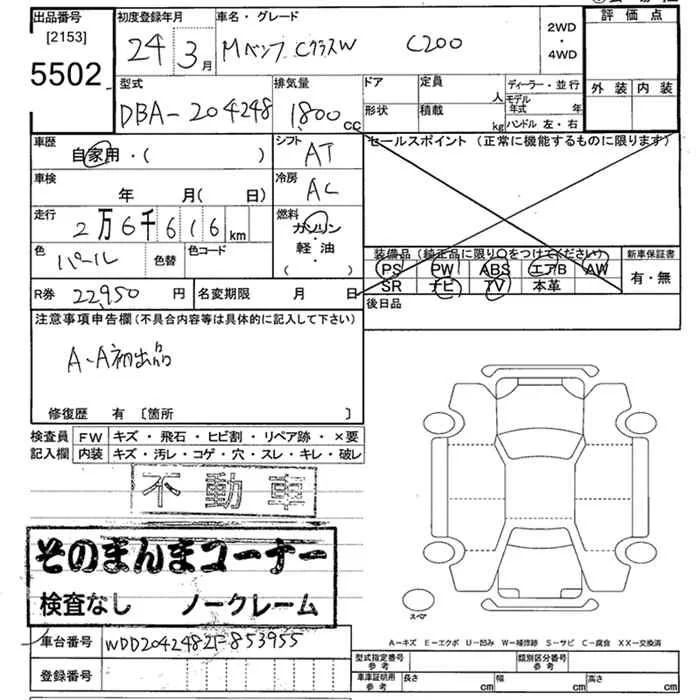 出品番号 初度登録年月 車名・グレード 評価点
[2153] 24 3月 Mベンツ CクラスW C200 2WD・4WD
5502 外装 内装
型式 排気量 ドア 定員 人 ディーラー・並行
DBA-204248 1,800cc 形状 積載 kg モデル年式 年
ハンドル 左・右
車歴 自家用・( ) シフト AT セールスポイント (正常に機能するものに限ります)
車検 年 月( 日) 冷房 AC
走行 2万6千616km 燃料 ガソリン・軽油・( )
色 パール 色替 色コード
装備品(純正品に限り○をつけてください) 新車保証書
PS PW ABS エアB AW 有・無
SR ナビ TV 本革
R券 22,950円 名変期限 月 日 後日品
注意事項申告欄(不具合内容等は具体的に記入して下さい)
A-A初出品
修復歴 有 〔箇所 〕
検査員 FW キズ・飛石・ヒビ割・リペア跡・×要
記入欄 内装 キズ・汚レ・コゲ・穴・スレ・キレ・破レ
不動車
そのまんまコーナー
検査なし ノークレーム
スペア
A-キズ E-エクボ U-凹み W-補修跡 S-サビ C-腐食 XX-交換済
車台番号 WDD2042482F853955
登録番号
型式指定番号 参考 類別区分番号 参考
車庫証明用 参考 長さ cm 幅 cm 高さ cm